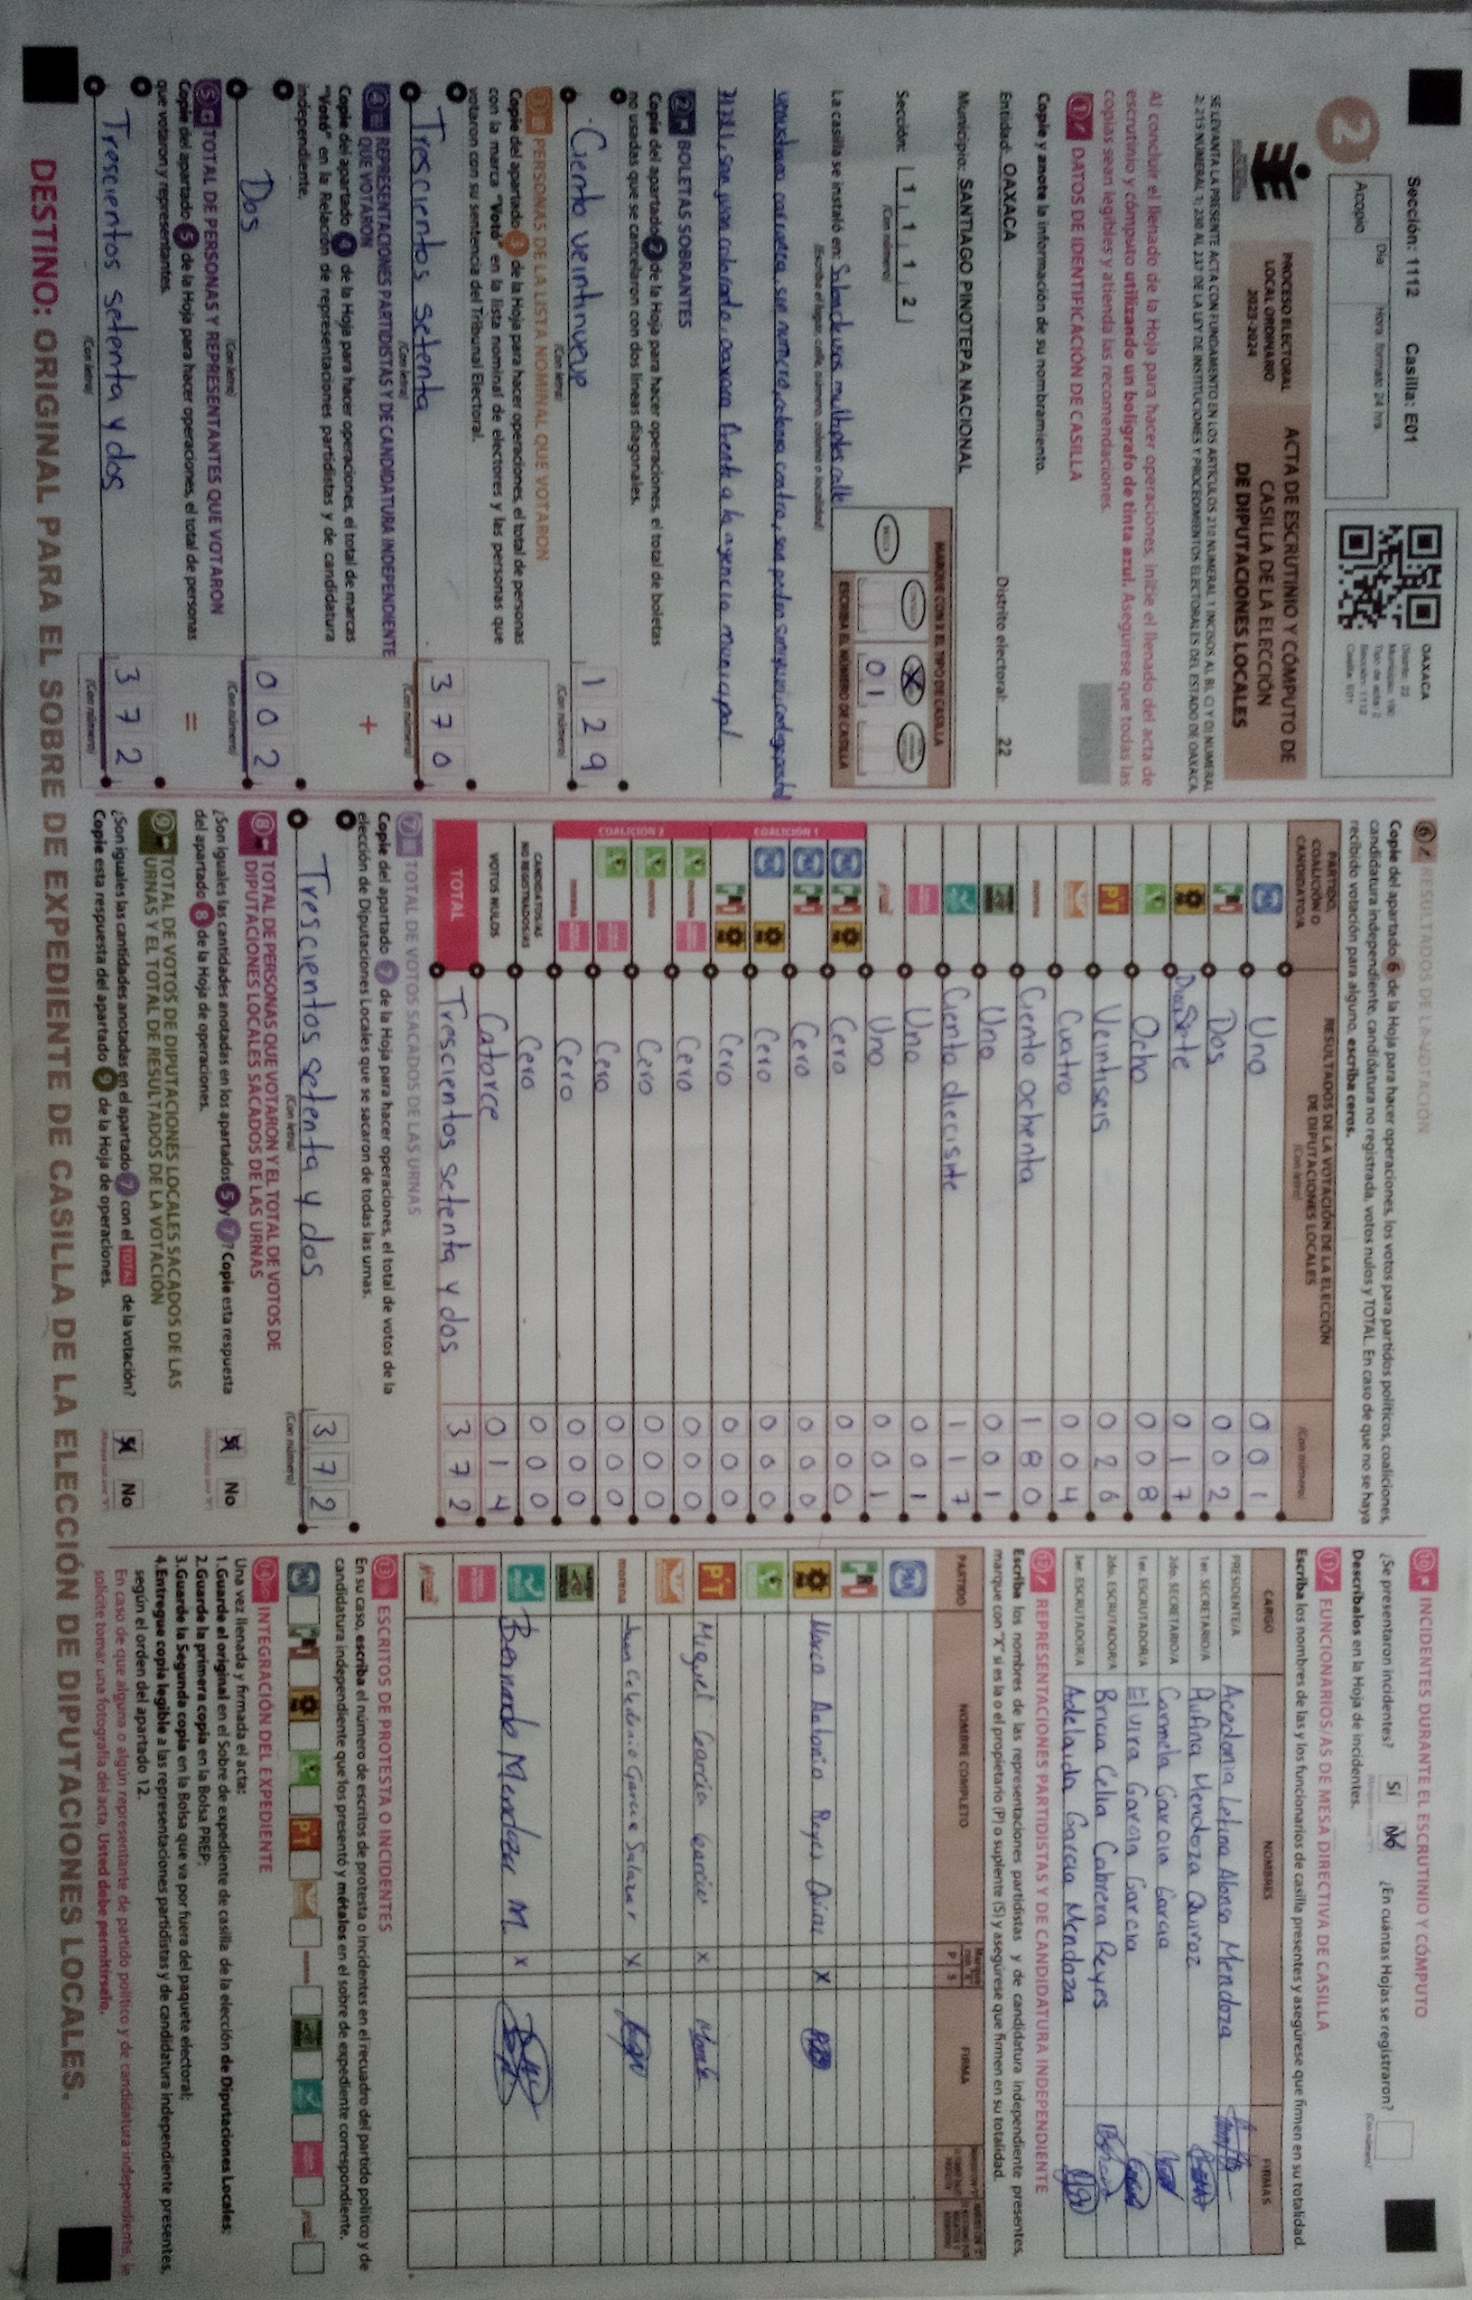 Sección: 1112 Casilla: E01
2
Día: Hora formato 24 hrs.
Acopio
OAXACA
Distrito: 22
Tipo de acta: 2
Sección: 1112
Casilla: E01
PROCESO ELECTORAL
LOCAL ORDINARIO
2023-2024
ACTA DE ESCRUTINIO Y CÓMPUTO DE
CASILLA DE LA ELECCIÓN
DE DIPUTACIONES LOCALES
SE LEVANTA LA PRESENTE ACTA CON FUNDAMENTO EN LOS ARTÍCULOS
Al concluir el llenado de la Hoja para hacer operaciones, inicie el llenado del acta de
escrutinio y cómputo utilizando un bolígrafo de tinta azul. Asegúrese que todas las
copias sean legibles y atienda las recomendaciones.
1 DATOS DE IDENTIFICACIÓN DE CASILLA
Copie y anote la información de su nombramiento.
Entidad: OAXACA Distrito electoral: 22
Municipio: SANTIAGO PINOTEPA NACIONAL
Sección: 1 1 1 2
(Con número)
MARQUE CON X EL TIPO DE CASILLA
X
ESCRIBA EL NÚMERO DE CASILLA
0 1
La casilla se instaló en:
(Escriba el lugar: calle, número, colonia o localidad)
2 BOLETAS SOBRANTES
Copie del apartado 2 de la Hoja para hacer operaciones, el total de boletas
no usadas que se cancelaron con dos líneas diagonales.
Ciento veintinueve 1 2 9
(Con letra) (Con número)
3 PERSONAS DE LA LISTA NOMINAL QUE VOTARON
Copie del apartado 3 de la Hoja para hacer operaciones, el total de personas
con la marca "Votó" en la lista nominal de electores y las personas que
votaron con su sentencia del Tribunal Electoral.
Trescientos setenta 3 7 0
(Con letra) (Con número)
4 REPRESENTACIONES PARTIDISTAS Y DE CANDIDATURA INDEPENDIENTE
QUE VOTARON
+
Copie del apartado 4 de la Hoja para hacer operaciones, el total de marcas
"Votó" en la Relación de representaciones partidistas y de candidatura
independiente.
Dos 0 0 2
(Con letra) (Con número)
5 TOTAL DE PERSONAS Y REPRESENTANTES QUE VOTARON
=
Copie del apartado 5 de la Hoja para hacer operaciones, el total de personas
que votaron y representantes.
Trescientos setenta y dos 3 7 2
(Con letra) (Con número)
6 RESULTADOS DE LA VOTACIÓN
Copie del apartado 6 de la Hoja para hacer operaciones, los votos para partidos políticos, coaliciones,
candidatura independiente, candidatura no registrada, votos nulos y TOTAL. En caso de que no se haya
recibido votación para alguno, escriba ceros.
PARTIDO, COALICIÓN O CANDIDATO/A
RESULTADOS DE LA VOTACIÓN DE LA ELECCIÓN
DE DIPUTACIONES LOCALES
(Con letra) (Con número)
PAN Uno 0 0 1
PRI Dos 0 0 2
PRD Diecisiete 0 1 7
Ocho 0 0 8
PT Veintiseis 0 2 6
Cuatro 0 0 4
morena Ciento ochenta 1 8 0
Uno 0 0 1
Ciento diecisite 1 1 7
Uno 0 0 1
Uno 0 0 1
COALICIÓN 1
Cero 0 0 0
Cero 0 0 0
Cero 0 0 0
Cero 0 0 0
COALICIÓN 2
Cero 0 0 0
Cero 0 0 0
Cero 0 0 0
Cero 0 0 0
CANDIDATOS/AS NO REGISTRADOS/AS Cero 0 0 0
VOTOS NULOS Catorce 0 1 4
TOTAL Trescientos setenta y dos 3 7 2
7 TOTAL DE VOTOS SACADOS DE LAS URNAS
Copie del apartado 7 de la Hoja para hacer operaciones, el total de votos de la
elección de Diputaciones Locales que se sacaron de todas las urnas.
Trescientos setenta y dos 3 7 2
(Con letra) (Con número)
8 TOTAL DE PERSONAS QUE VOTARON Y EL TOTAL DE VOTOS DE
DIPUTACIONES LOCALES SACADOS DE LAS URNAS
¿Son iguales las cantidades anotadas en los apartados 5 y 7? Copie esta respuesta
del apartado 8 de la Hoja de operaciones. Sí No
9 TOTAL DE VOTOS DE DIPUTACIONES LOCALES SACADOS DE LAS
URNAS Y EL TOTAL DE RESULTADOS DE LA VOTACIÓN
¿Son iguales las cantidades anotadas en el apartado 7 con el TOTAL de la votación?
Copie esta respuesta del apartado 9 de la Hoja de operaciones. Sí No
10 INCIDENTES DURANTE EL ESCRUTINIO Y CÓMPUTO
¿Se presentaron incidentes? Sí No ¿En cuántas Hojas se registraron?
(Con número)
Descríbalos en la Hoja de incidentes.
11 FUNCIONARIOS/AS DE MESA DIRECTIVA DE CASILLA
Escriba los nombres de las y los funcionarios de casilla presentes y asegúrese que firmen en su totalidad.
CARGO NOMBRES FIRMAS
PRESIDENTE/A Acedonia Leticia Alonso Mendoza
1er. SECRETARIO/A Rufina Mendoza Quiroz
2do. SECRETARIO/A Carmela Garcia Garcia
1er. ESCRUTADOR/A Elvira Garcia Garcia
2do. ESCRUTADOR/A Bricia Celia Cabrera Reyes
3er. ESCRUTADOR/A Adelaida Garcia Mendoza
12 REPRESENTACIONES PARTIDISTAS Y DE CANDIDATURA INDEPENDIENTE
Escriba los nombres de las representaciones partidistas y de candidatura independiente presentes,
marque con "X" si es la o el propietario (P) o suplente (S) y asegúrese que firmen en su totalidad.
PARTIDO NOMBRE COMPLETO P S FIRMA
PAN
PRI
PRD Marco Antonio Reyes X
PT Miguel Garcia Garcia X
morena Juan Celedonio Garcia Salazar X
Bernardo Mendoza M X
13 ESCRITOS DE PROTESTA O INCIDENTES
En su caso, escriba el número de escritos de protesta o incidentes en el recuadro del partido político y de
candidatura independiente que los presentó y métalos en el sobre de expediente correspondiente.
14 INTEGRACIÓN DEL EXPEDIENTE
Una vez llenada y firmada el acta:
1.Guarde el original en el Sobre de expediente de casilla de la elección de Diputaciones Locales;
2.Guarde la primera copia en la Bolsa PREP;
3.Guarde la Segunda copia en la Bolsa que va por fuera del paquete electoral;
4.Entregue copia legible a las representaciones partidistas y de candidatura independiente presentes,
según el orden del apartado 12.
En caso de que alguna o algún representante de partido político y de candidatura independiente, le
solicite tomar una fotografía del acta, Usted debe permitírselo.
DESTINO: ORIGINAL PARA EL SOBRE DE EXPEDIENTE DE CASILLA DE LA ELECCIÓN DE DIPUTACIONES LOCALES.